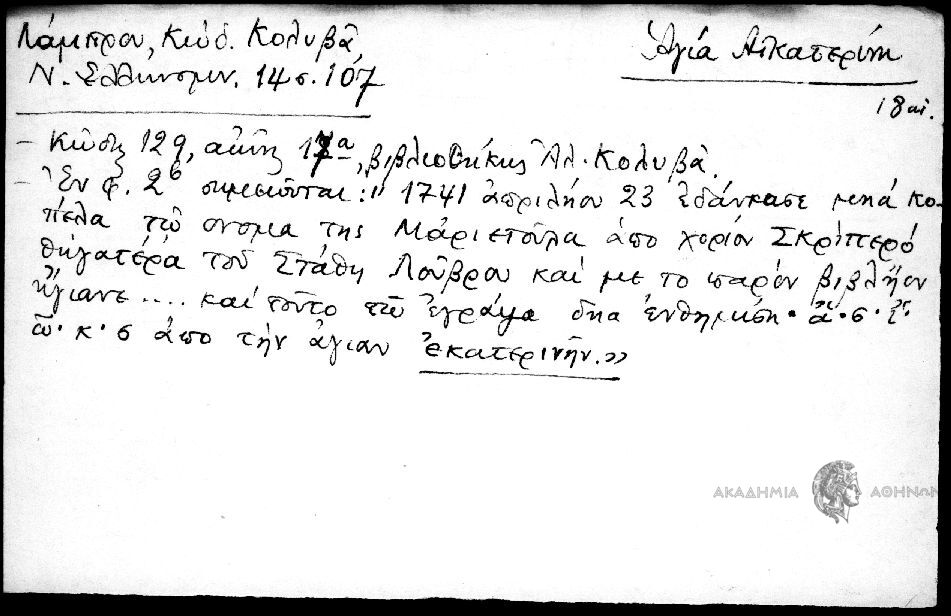 Λάμπρου, Κώδ. Κολυβᾶ
Ν. Ἑλληνομν. 14 σ. 107
Ἁγία Αἰκατερίνη
18 αἰ.
– Κῶδιξ 129, αἰῶν 17α, βιβλιοθήκης Ἀλ. Κολυβᾶ.
– Ἐν φ. 2β σημειοῦται: " 1741 ἀπριλήου 23 ἐδάνκασε μηά κο-
πέλα τῶ ονομα της Μάριετοῦλα ἀπο χορίον Σκριπερό
θηγατέρα τοῦ Στάθη Λοῦβρου και με το παρόν βιβλήον
ἤγιανε .... και τοῦτο τῶ ἐγράψα δηα ἐνθημίση· ἄ· σ· ἵ·
ῶ· κ· σ ἀπο τὴν ἁγιαν ἐκατερινῆν."
ΑΚΑΔΗΜΙΑ ΑΘΗΝΩΝ